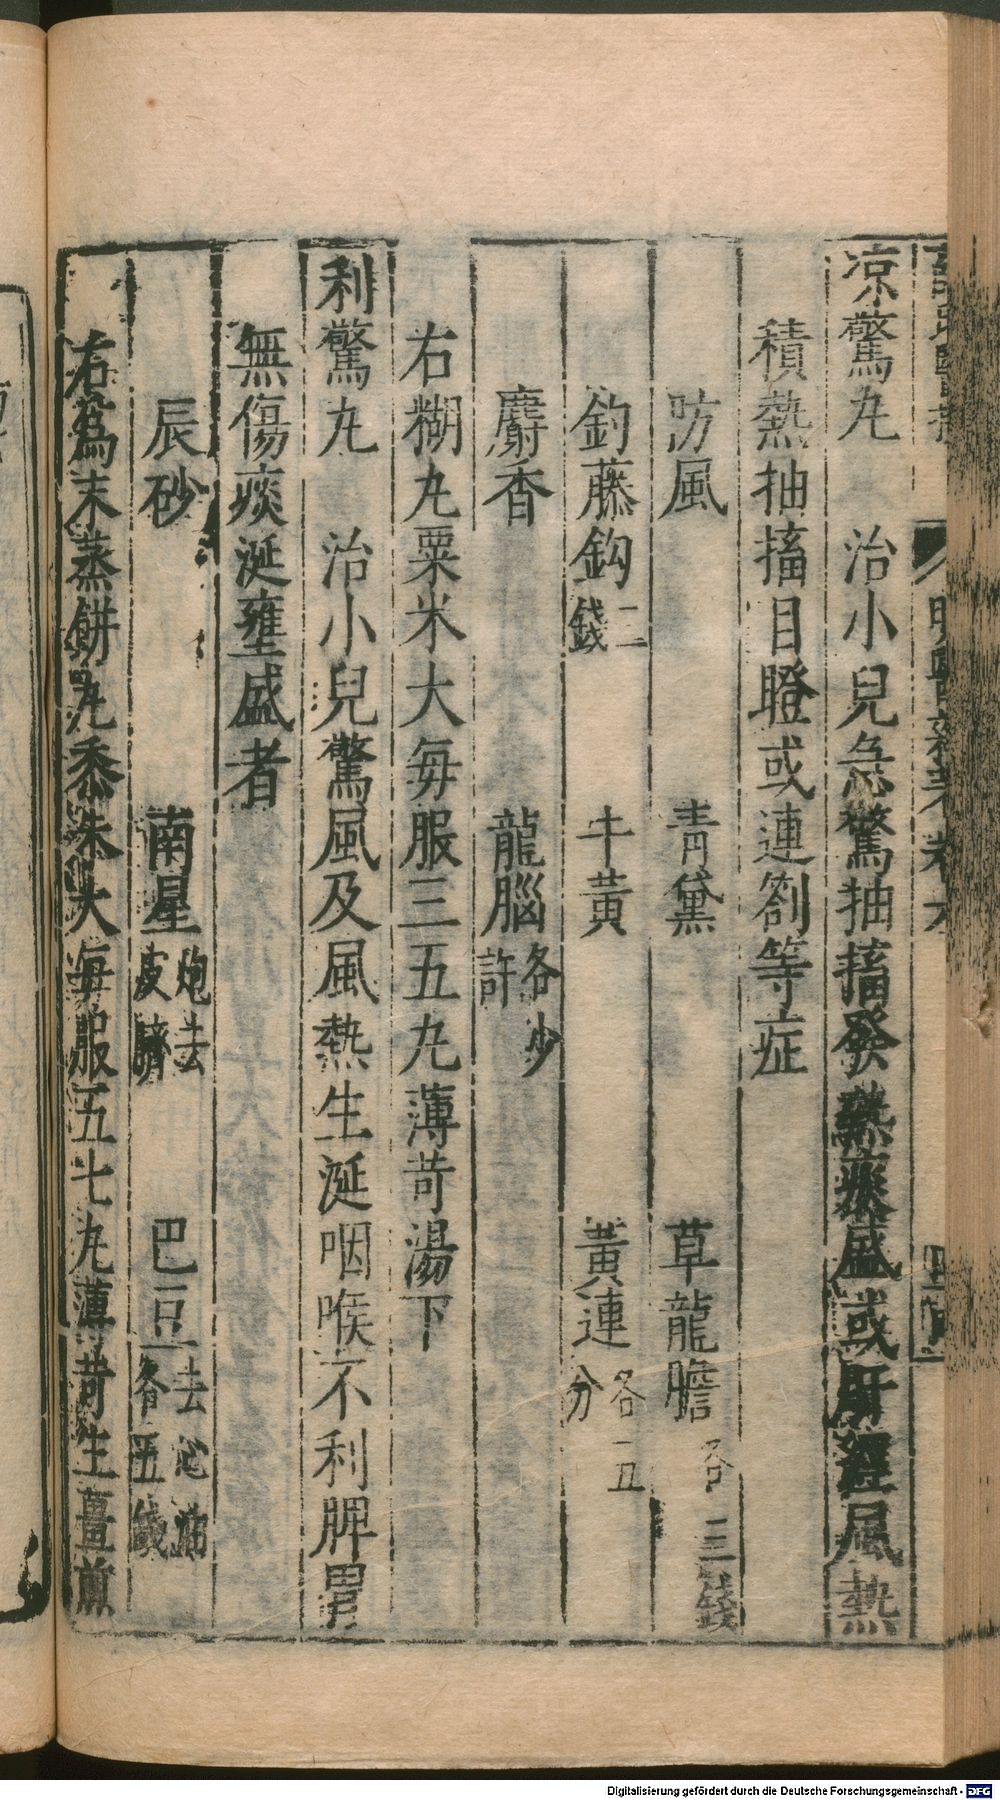 涼驚丸　治小兒急驚抽搐發熱痰盛或肝經風熱
積熱抽搐目瞪或連劄等症
防風　青黛　草龍膽各三錢
鈎藤鈎二錢　牛黃　黃連各五分
麝香　龍腦各少許
右糊丸粟米大每服三五丸薄苛湯下
利驚丸　治小兒驚風及風熱生涎咽喉不利脾胃
無傷痰涎壅盛者
辰砂　南星炮去皮臍　巴豆去心油各五錢
右爲末蒸餅丸黍珠大每服五七丸薄苛生薑煎
Digitalisierung gefördert durch die Deutsche Forschungsgemeinschaft - DFG